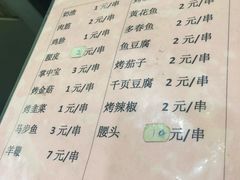 奶渣 1元/串
鸡胗 1元/串
黄花鱼 2元/串
多春鱼 2元/串
鱼豆腐 2元/串
掌中宝 3元/串
烤茄子 2元/串
烤金菇 1元/串
千页豆腐 2元/串
烤韭菜 1元/串
烤辣椒 2元/串
马步鱼 3元/串
腰头 10元/串
羊鞭 7元/串